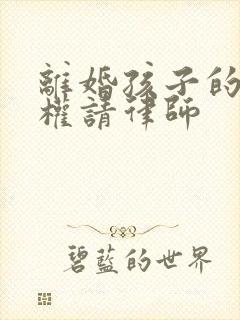 離婚孩子的
權請律師
碧藍的世界